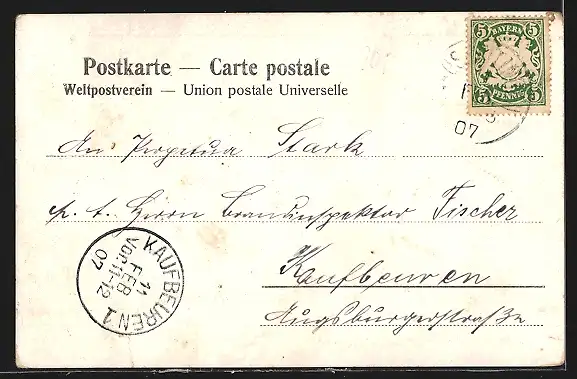 5 BAYERN 5
5 PFENNIG 5
07
Postkarte — Carte postale
Weltpostverein — Union postale Universelle
An Perpetua Stark
p. A. Herrn Brandinspektor Fischer
Kaufbeuren
Augsburgerstraße
KAUFBEUREN 1
11
FEB
VOR. 11-12
07